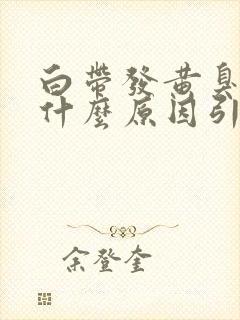 白帶發黃臭
什麼原因引
余登奎